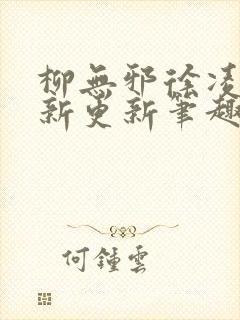 柳無邪徐凌
新更新筆趣
何鍾雲